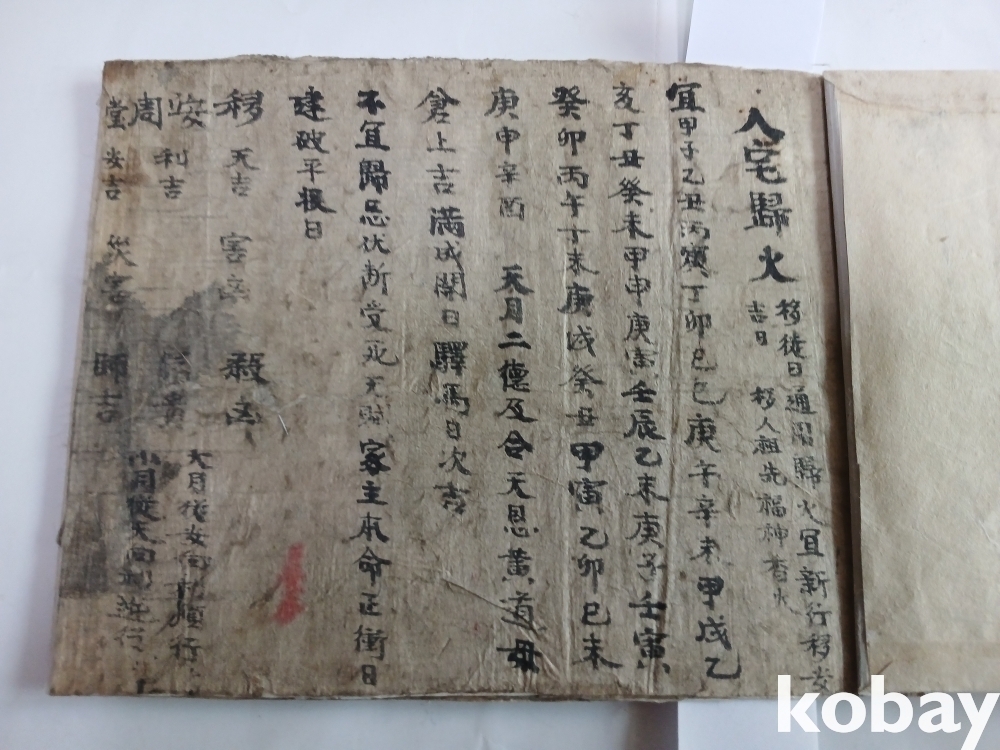 入宅歸火
移徙日通用歸火宜新行移安
吉日 移人祖先福神香火
宜甲子乙丑丙寅丁卯己巳庚午辛未甲戌乙
亥丁丑癸未甲申庚寅壬辰乙未庚子壬寅
癸卯丙午丁未庚戌癸丑甲寅乙卯己未
庚申辛酉 天月二德及合天恩黃道母
倉上吉滿成開日驛馬日次吉
不宜歸忌伏斷受死天賊家主本命正衝日
建破平收日
移 天吉 害凶 殺凶
安 利吉 富 大月從安向利順行
周堂 安吉 災害 師吉 小月從天向利逆行
kobay